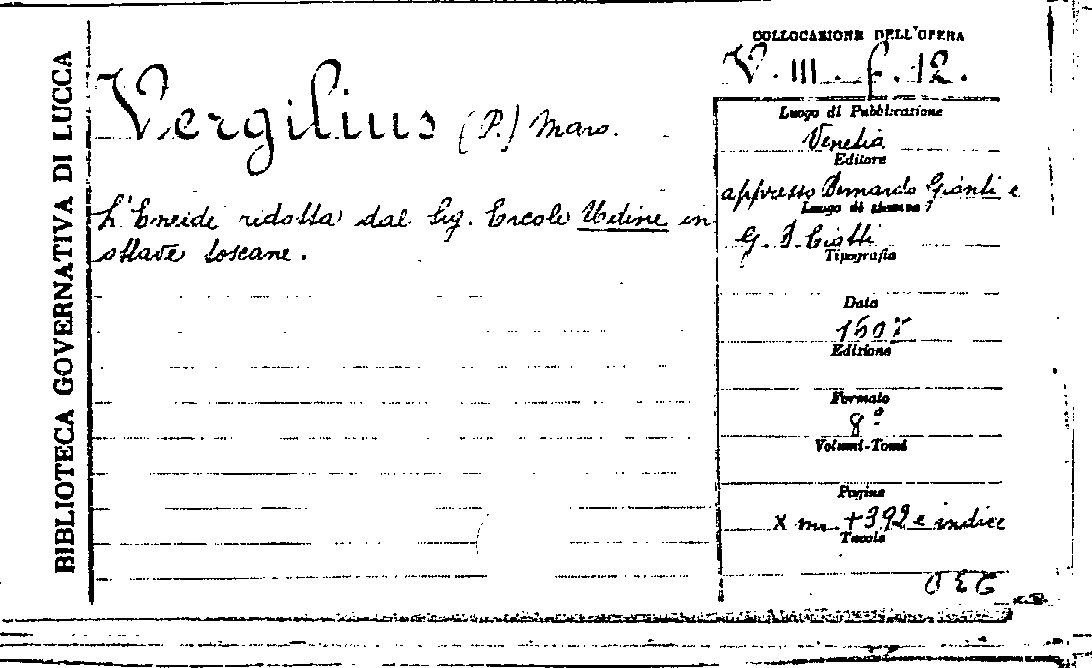 BIBLIOTECA GOVERNATIVA DI LUCCA
Vergilius (P.) Maro.
L'Eneide ridotta dal Sig. Ercole Udine in
ottave toscane.
COLLOCAZIONE DELL'OPERA
V. III. f. 12.
Luogo di Pubblicazione
Venetia
Editore
appresso Bernardo Giunti e
Luogo di stampa
G. B. Ciotti
Tipografia
Data
Edizione
Formato
8º
Volumi-Tomi
Pagine
X nn. + 392 e indice
Tavole